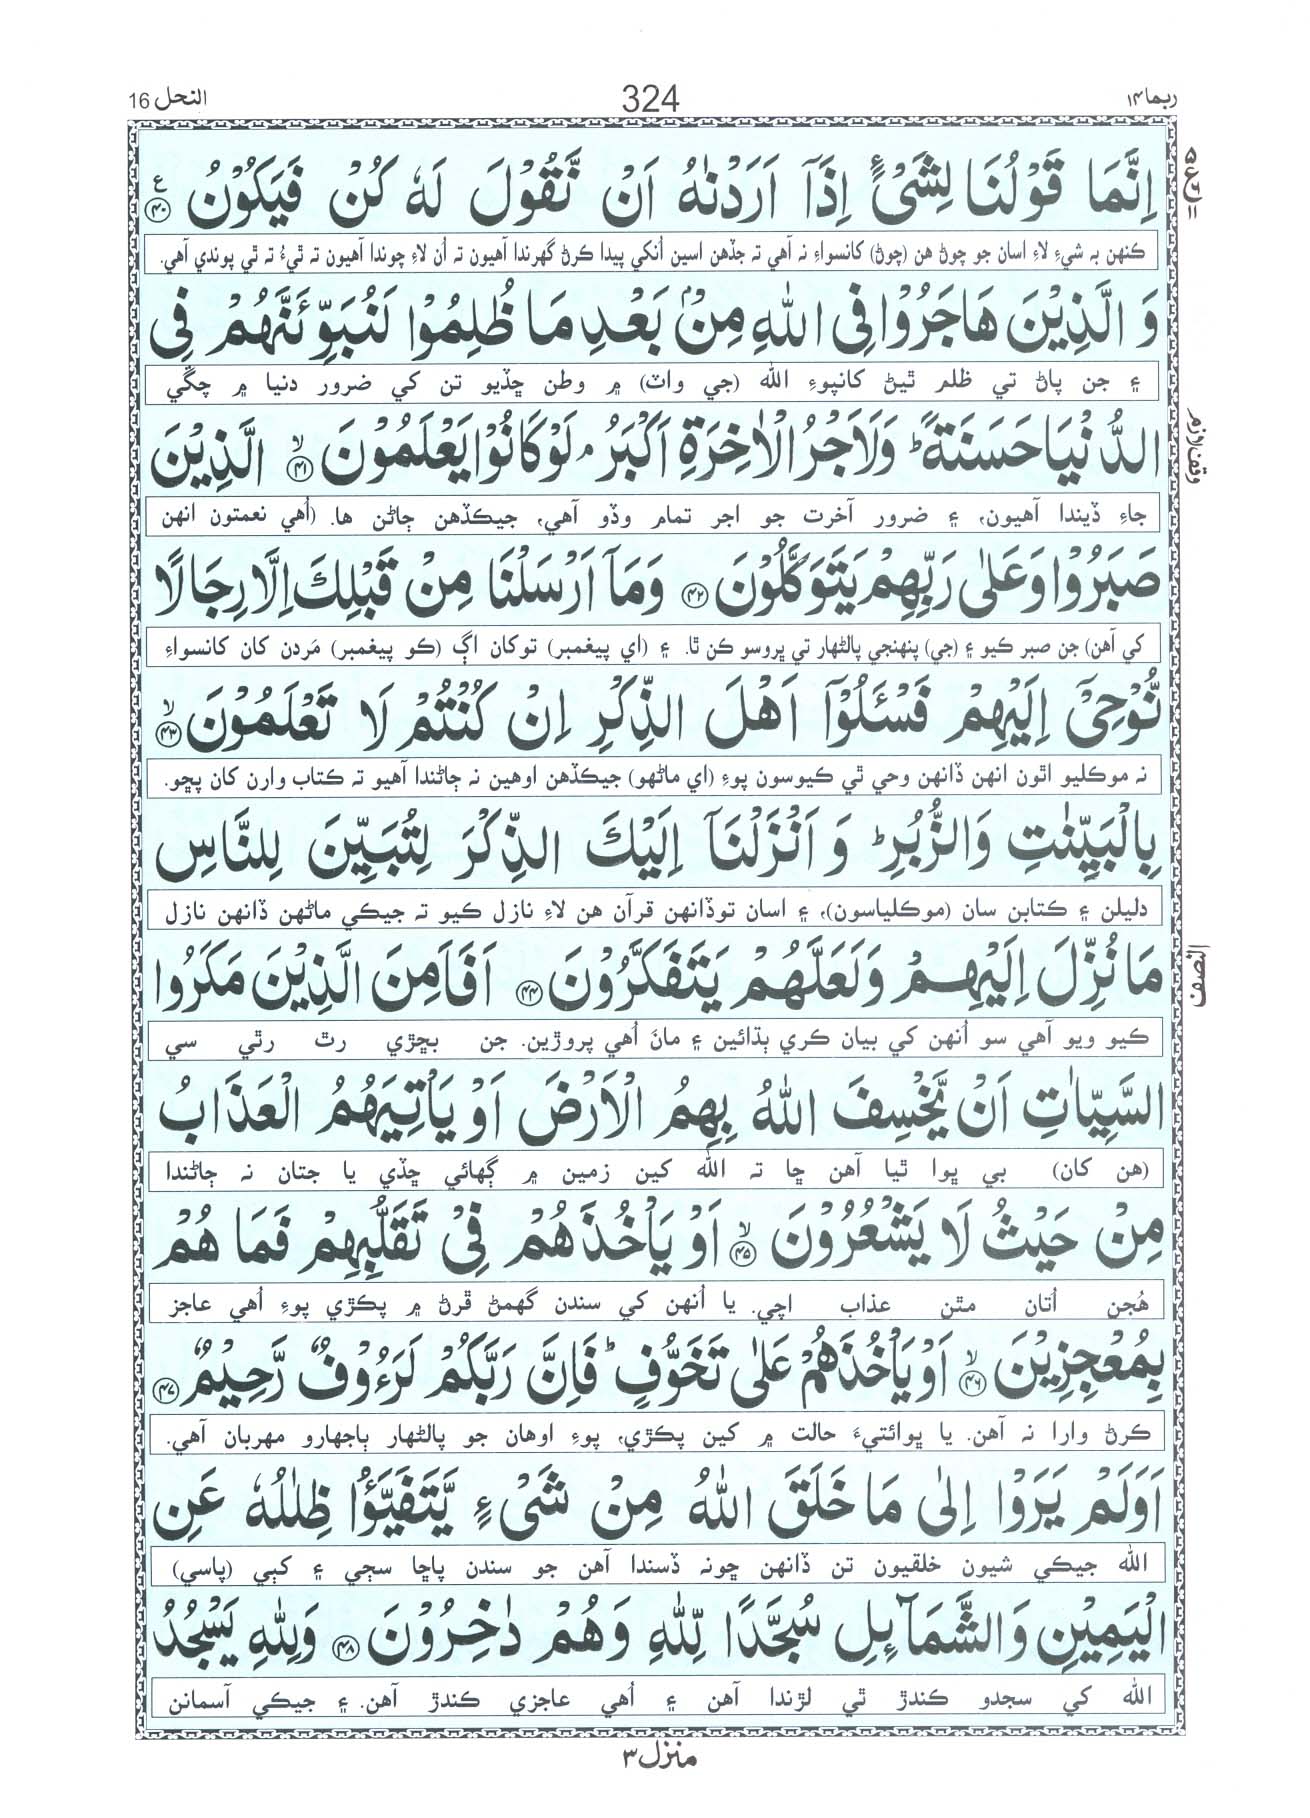 ربما ۱۴
324
النحل 16
اِنَّمَا قَوْلُنَا لِشَیْءٍ اِذَاۤ اَرَدْنٰهُ اَنْ نَّقُوْلَ لَهٗ كُنْ فَیَكُوْنُ ۴۰ ع
کنهن بہ شيءِ لاءِ اسان جو چوڻ هن (چوڻ) کانسواءِ نہ آهي تہ جڏهن اسين اُنکي پيدا ڪرڻ گهرندا آهيون تہ اُن لاءِ چوندا آهيون تہ ٿيءُ تہ ٿي پوندي آهي.
وَ الَّذِیْنَ هَاجَرُوْا فِی اللّٰهِ مِنْۢ بَعْدِ مَا ظُلِمُوْا لَنُبَوِّئَنَّهُمْ فِی
۽ جن پاڻ تي ظلم ٿيڻ کانپوءِ الله (جي واٽ) ۾ وطن ڇڏيو تن کي ضرور دنيا ۾ چڱي
الدُّنْیَا حَسَنَةً ؕ وَلَاَجْرُ الْاٰخِرَةِ اَكْبَرُ ۘ لَوْ كَانُوْا یَعْلَمُوْنَ ۙ۴۱ الَّذِیْنَ
وقف لازم
جاءِ ڏيندا آهيون، ۽ ضرور آخرت جو اجر تمام وڏو آهي، جيڪڏهن ڄاڻن ها. (اُهي نعمتون انهن
صَبَرُوْا وَعَلٰی رَبِّهِمْ یَتَوَكَّلُوْنَ ۴۲ وَمَاۤ اَرْسَلْنَا مِنْ قَبْلِكَ اِلَّا رِجَالًا
کي آهن) جن صبر ڪيو ۽ (جي) پنهنجي پالڻهار تي ڀروسو ڪن ٿا. ۽ (اي پيغمبر) توکان اڳ (ڪو پيغمبر) مَردن کان کانسواءِ
نُّوْحِیْۤ اِلَیْهِمْ فَسْـَٔلُوْۤا اَهْلَ الذِّكْرِ اِنْ كُنْتُمْ لَا تَعْلَمُوْنَ ۙ۴۳
نہ موڪليو اٿون انهن ڏانهن وحي ٿي ڪيوسون پوءِ (اي ماڻهو) جيڪڏهن اوهين نہ ڄاڻندا آهيو تہ ڪتاب وارن کان پڇو.
بِالْبَیِّنٰتِ وَالزُّبُرِ ؕ وَ اَنْزَلْنَاۤ اِلَیْكَ الذِّكْرَ لِتُبَیِّنَ لِلنَّاسِ
دليلن ۽ ڪتابن سان (موڪلياسون)، ۽ اسان توڏانهن قرآن هن لاءِ نازل ڪيو تہ جيڪي ماڻهن ڏانهن نازل
مَا نُزِّلَ اِلَیْهِمْ وَلَعَلَّهُمْ یَتَفَكَّرُوْنَ ۴۴ اَفَاَمِنَ الَّذِیْنَ مَكَرُوا
النصف
ڪيو ويو آهي سو اُنهن کي بيان ڪري ٻڌائين ۽ مانَ اُهي پروڙين. جن بڇڙي رٿ رٿي سي
السَّیِّاٰتِ اَنْ یَّخْسِفَ اللّٰهُ بِهِمُ الْاَرْضَ اَوْ یَاْتِیَهُمُ الْعَذَابُ
(هن کان) بي ڀوا ٿيا آهن ڇا تہ الله کين زمين ۾ ڳهائي ڇڏي يا جتان نہ ڄاڻندا
مِنْ حَیْثُ لَا یَشْعُرُوْنَ ۙ۴۵ اَوْ یَاْخُذَهُمْ فِیْ تَقَلُّبِهِمْ فَمَا هُمْ
هُجن اُتان مٿن عذاب اچي. يا اُنهن کي سندن گهمڻ ڦرڻ ۾ پڪڙي پوءِ اُهي عاجز
بِمُعْجِزِیْنَ ۙ۴۶ اَوْ یَاْخُذَهُمْ عَلٰی تَخَوُّفٍ ؕ فَاِنَّ رَبَّكُمْ لَرَءُوْفٌ رَّحِیْمٌ ۴۷
ڪرڻ وارا نہ آهن. يا ڀوائتيءَ حالت ۾ کين پڪڙي، پوءِ اوهان جو پالڻهار ٻاجهارو مهربان آهي.
اَوَلَمْ یَرَوْا اِلٰی مَا خَلَقَ اللّٰهُ مِنْ شَیْءٍ یَّتَفَیَّؤُا ظِلٰلُهٗ عَنِ
الله جيڪي شيون خلقيون تن ڏانهن ڇونہ ڏسندا آهن جو سندن پاڇا سڄي ۽ کٻي (پاسي)
الْیَمِیْنِ وَالشَّمَآئِلِ سُجَّدًا لِّلّٰهِ وَهُمْ دٰخِرُوْنَ ۴۸ وَلِلّٰهِ یَسْجُدُ
الله کي سجدو ڪندڙ ٿي لڙندا آهن ۽ اُهي عاجزي ڪندڙ آهن. ۽ جيڪي آسمانن
منزل ۳